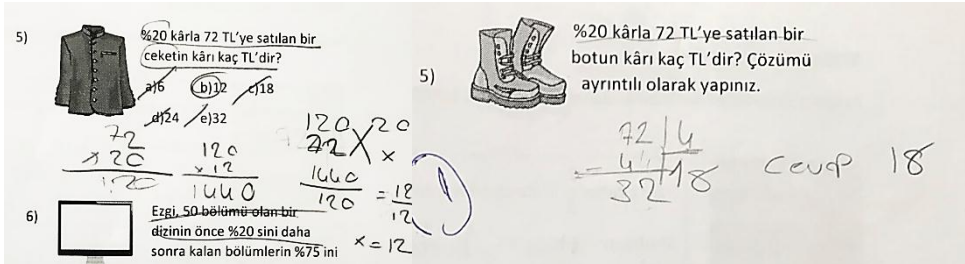 5)
%20 kârla 72 TL'ye satılan bir
ceketin kârı kaç TL'dir?
a)6 b)12 c)18
d)24 e)32
72
x20
120
x12
1440
120 20
72 x
1440
120
x=12
6)
Ezgi, 50 bölümü olan bir
dizinin önce %20 sini daha
sonra kalan bölümlerin %75 ini
5)
%20 kârla 72 TL'ye satılan bir
botun kârı kaç TL'dir? Çözümü
ayrıntılı olarak yapınız.
72 4
32 18
cevap 18